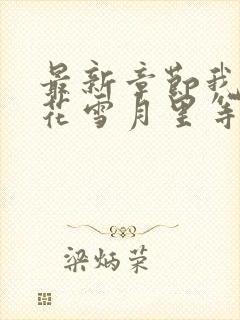 最新章节我
花雪月里等
梁炳荣